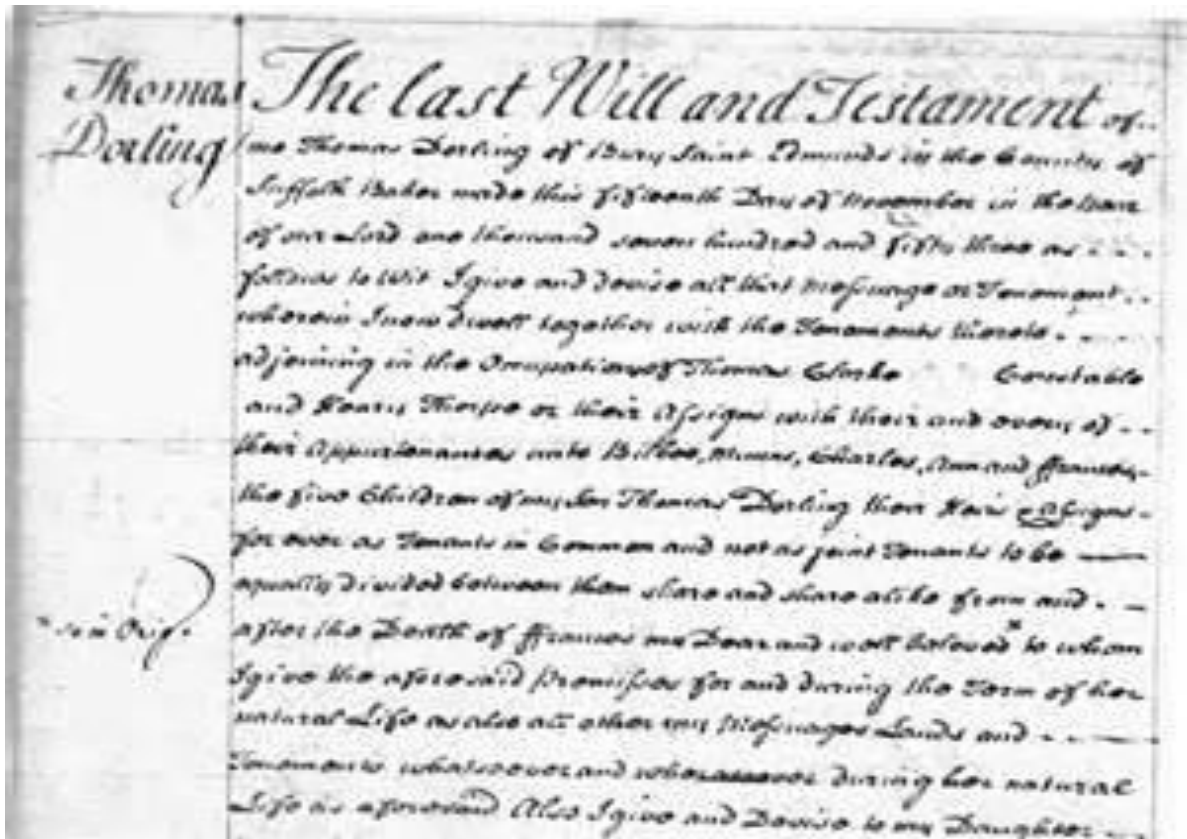 Thomas
Dorling
The last Will and Testament of
me Thomas Dorling of Bury Saint Edmunds in the County of
Suffolk Baker made this fifteenth Day of November in the Year
of our Lord one thousand seven hundred and fifty three as
follows to Wit I give and devise all that Messuage or Tenement
wherein I now dwell together with the Tenements thereto
adjoining in the Occupation of Thomas Clarke Constable
and Henry Thorpe or their Assigns with their and every of
their Appurtenances unto Charles, Ann and ffrances,
the five Children of my Son Thomas Dorling their Heirs & Assigns
for ever as Tenants in Common and not as joint Tenants to be
equally divided between them share and share alike from and
x so in Orig.
after the Death of ffrances my Dear and well beloved x to whom
I give the aforesaid Premisses for and during the Term of her
natural Life as also all other my Messuages Lands and
Tenements whatsoever and wheresoever during her natural
Life as aforesaid Also I give and Devise to my Daughter